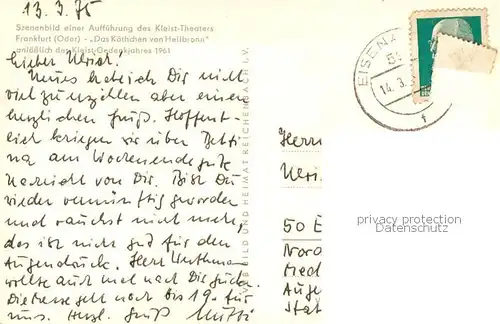 13.3.75
Szenenbild einer Aufführung des Kleist-Theaters
Frankfurt (Oder) - „Das Käthchen von Heilbronn"
anläßlich des Kleist-Gedenkjahres 1961
Lieber Ulrich!
Muss hatich Dir nicht
viel zu erzählen aber einen
herzlichen Gruß. Hoffent-
lich kriegen wir über Betti-
na am Wochenende gute
Nachricht von Dir. Bist Du
wieder vernünftig geworden
und rauchst nicht mehr,
das ist nicht gut für den
Augendruck. Herr
wollte auch mal nach Dir gucken.
Die Messe geht noch bis 19. für
uns. Herzl. Gruß Mutti
VEB BILD UND HEIMAT REICHENBACH I.V.
EISENA
14.3.
Herrn
50 E
Nord
Med
Auge
Stat
privacy protection
© ansichtskartenversand.com